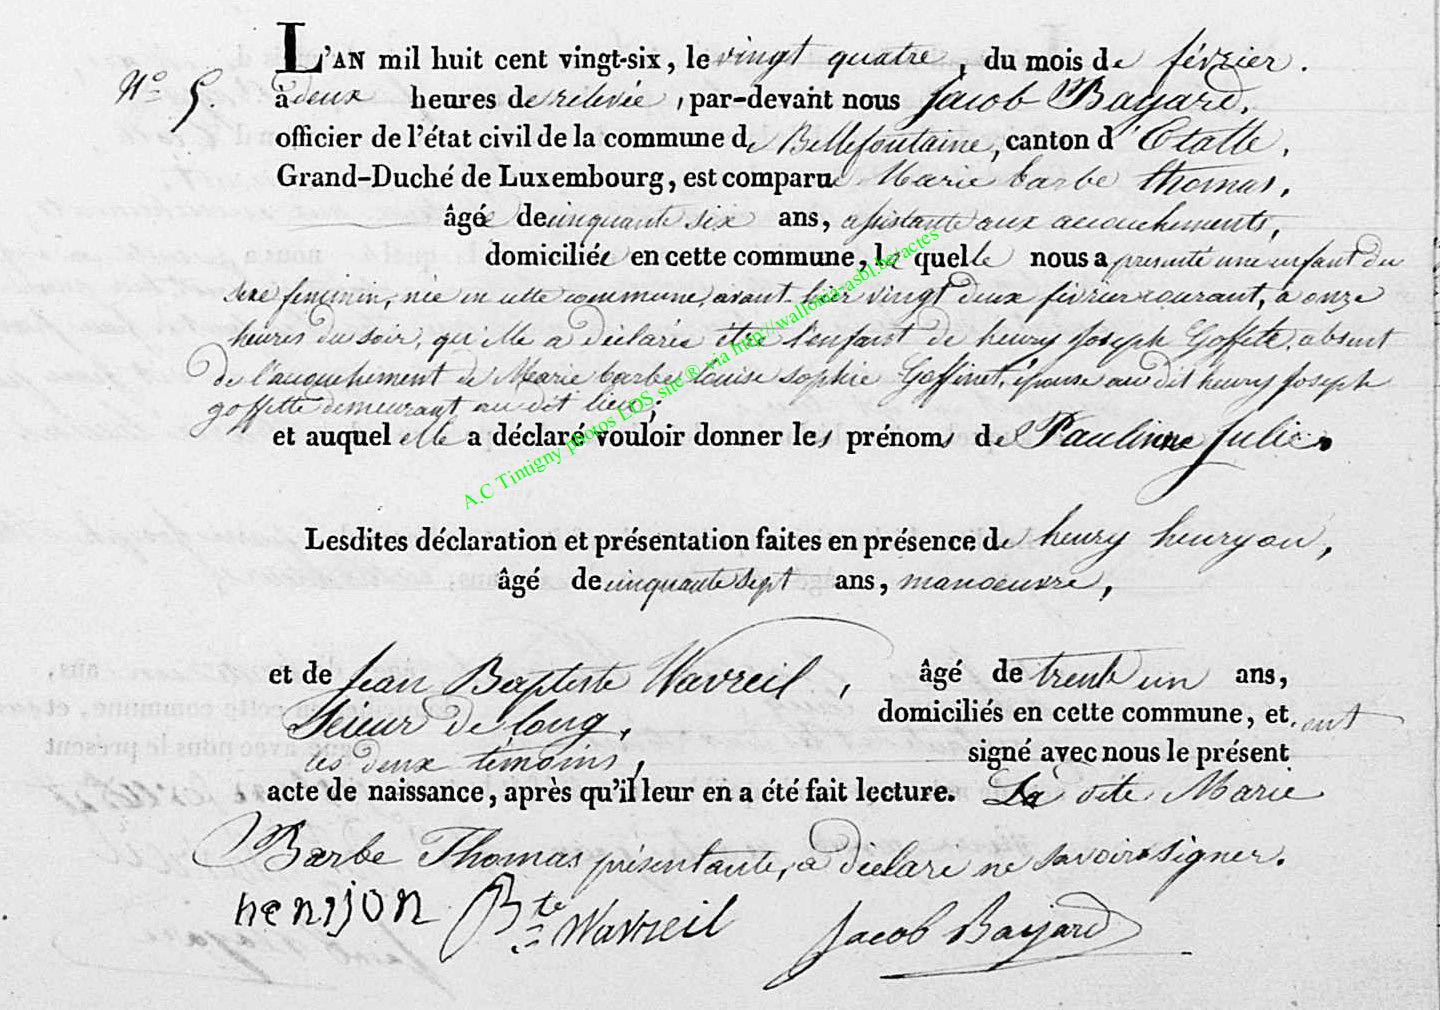 L'AN mil huit cent vingt-six, le vingt quatre, du mois de février.
N.o 5.
à deux heures de relevée, par-devant nous Jacob Bayard,
officier de l'état civil de la commune de Bellefontaine, canton d'Etalle,
Grand-Duché de Luxembourg, est comparue Marie barbe thomas,
âgée de cinquante six ans, assistante aux acouchements,
domiciliée en cette commune, la quelle nous a presenté une enfant du
sexe feminin, née en cette commune, avant-hier vingt deux février courant, a onze
heures du soir, qu'elle a déclarée être l'enfant de henry Joseph Goffette absent
de l'auquehement de Marie barbe louise sophie Goffinet, épouse au dit henry Joseph
goffette demeurant au dit lieu;
et auquel elle a déclaré vouloir donner les prénoms de Paulinne Julie.
Lesdites déclaration et présentation faites en présence de henry henryon,
âgé de cinquante sept ans, manoeuvre,
et de Jean Baptiste Wavreil, âgé de trente un ans,
Scieur de long, domiciliés en cette commune, et ont
les deux témoins, signé avec nous le présent
acte de naissance, après qu'il leur en a été fait lecture. La dite Marie
Barbe Thomas présentante, a diclare ne savoir signer.
henrjon Bte Wavreil Jacob Bayard
A.C Tintigny photos LDS site ® via http://wallonia-asbl.be/actes